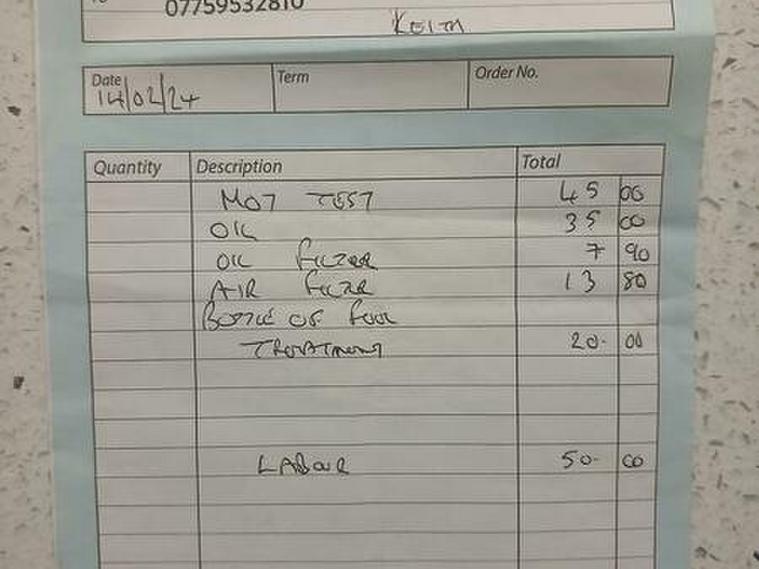 07759532810
KEITH
Date Term Order No.
14/02/24
Quantity Description Total
MOT TEST 45 00
OIL 35 00
OIL FILTER 7 90
AIR FILTER 13 80
BOTTLE OF FUEL
TREATMENT 20- 00
LABOUR 50- 00